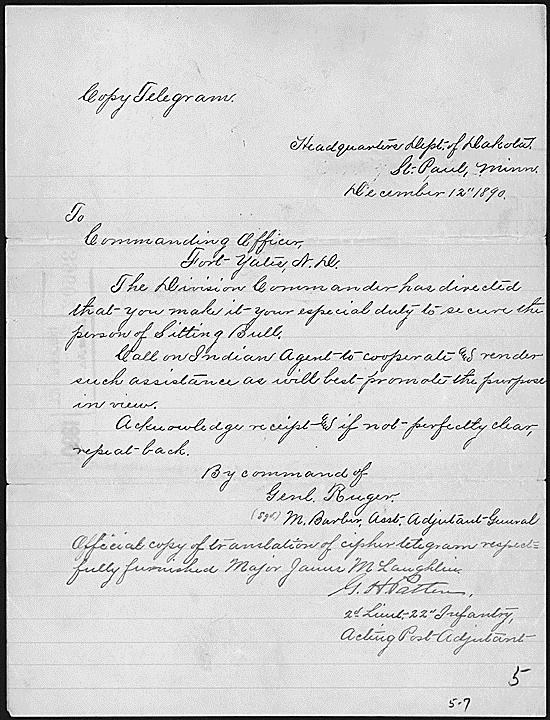 Copy Telegram.
Headquarters Dept. of Dakota.
St. Paul, Minn.
December 12" 1890.
To
Commanding Officer,
Fort Yates, N.D.
The Division Commander has directed
that you make it your especial duty to secure the
person of Sitting Bull.
Call on Indian Agent to cooperate & render
such assistance as will best promote the purpose
in view.
Acknowledge receipt & if not perfectly clear,
repeat back.
By command of
Genl. Ruger.
(Sgd) M. Barber, Asst. Adjutant General
Official copy of translation of cipher telegram respect-
fully furnished Major James McLaughlin.
G. H. Patten,
2d Lieut. 22d Infantry,
Acting Post Adjutant
5
5-7